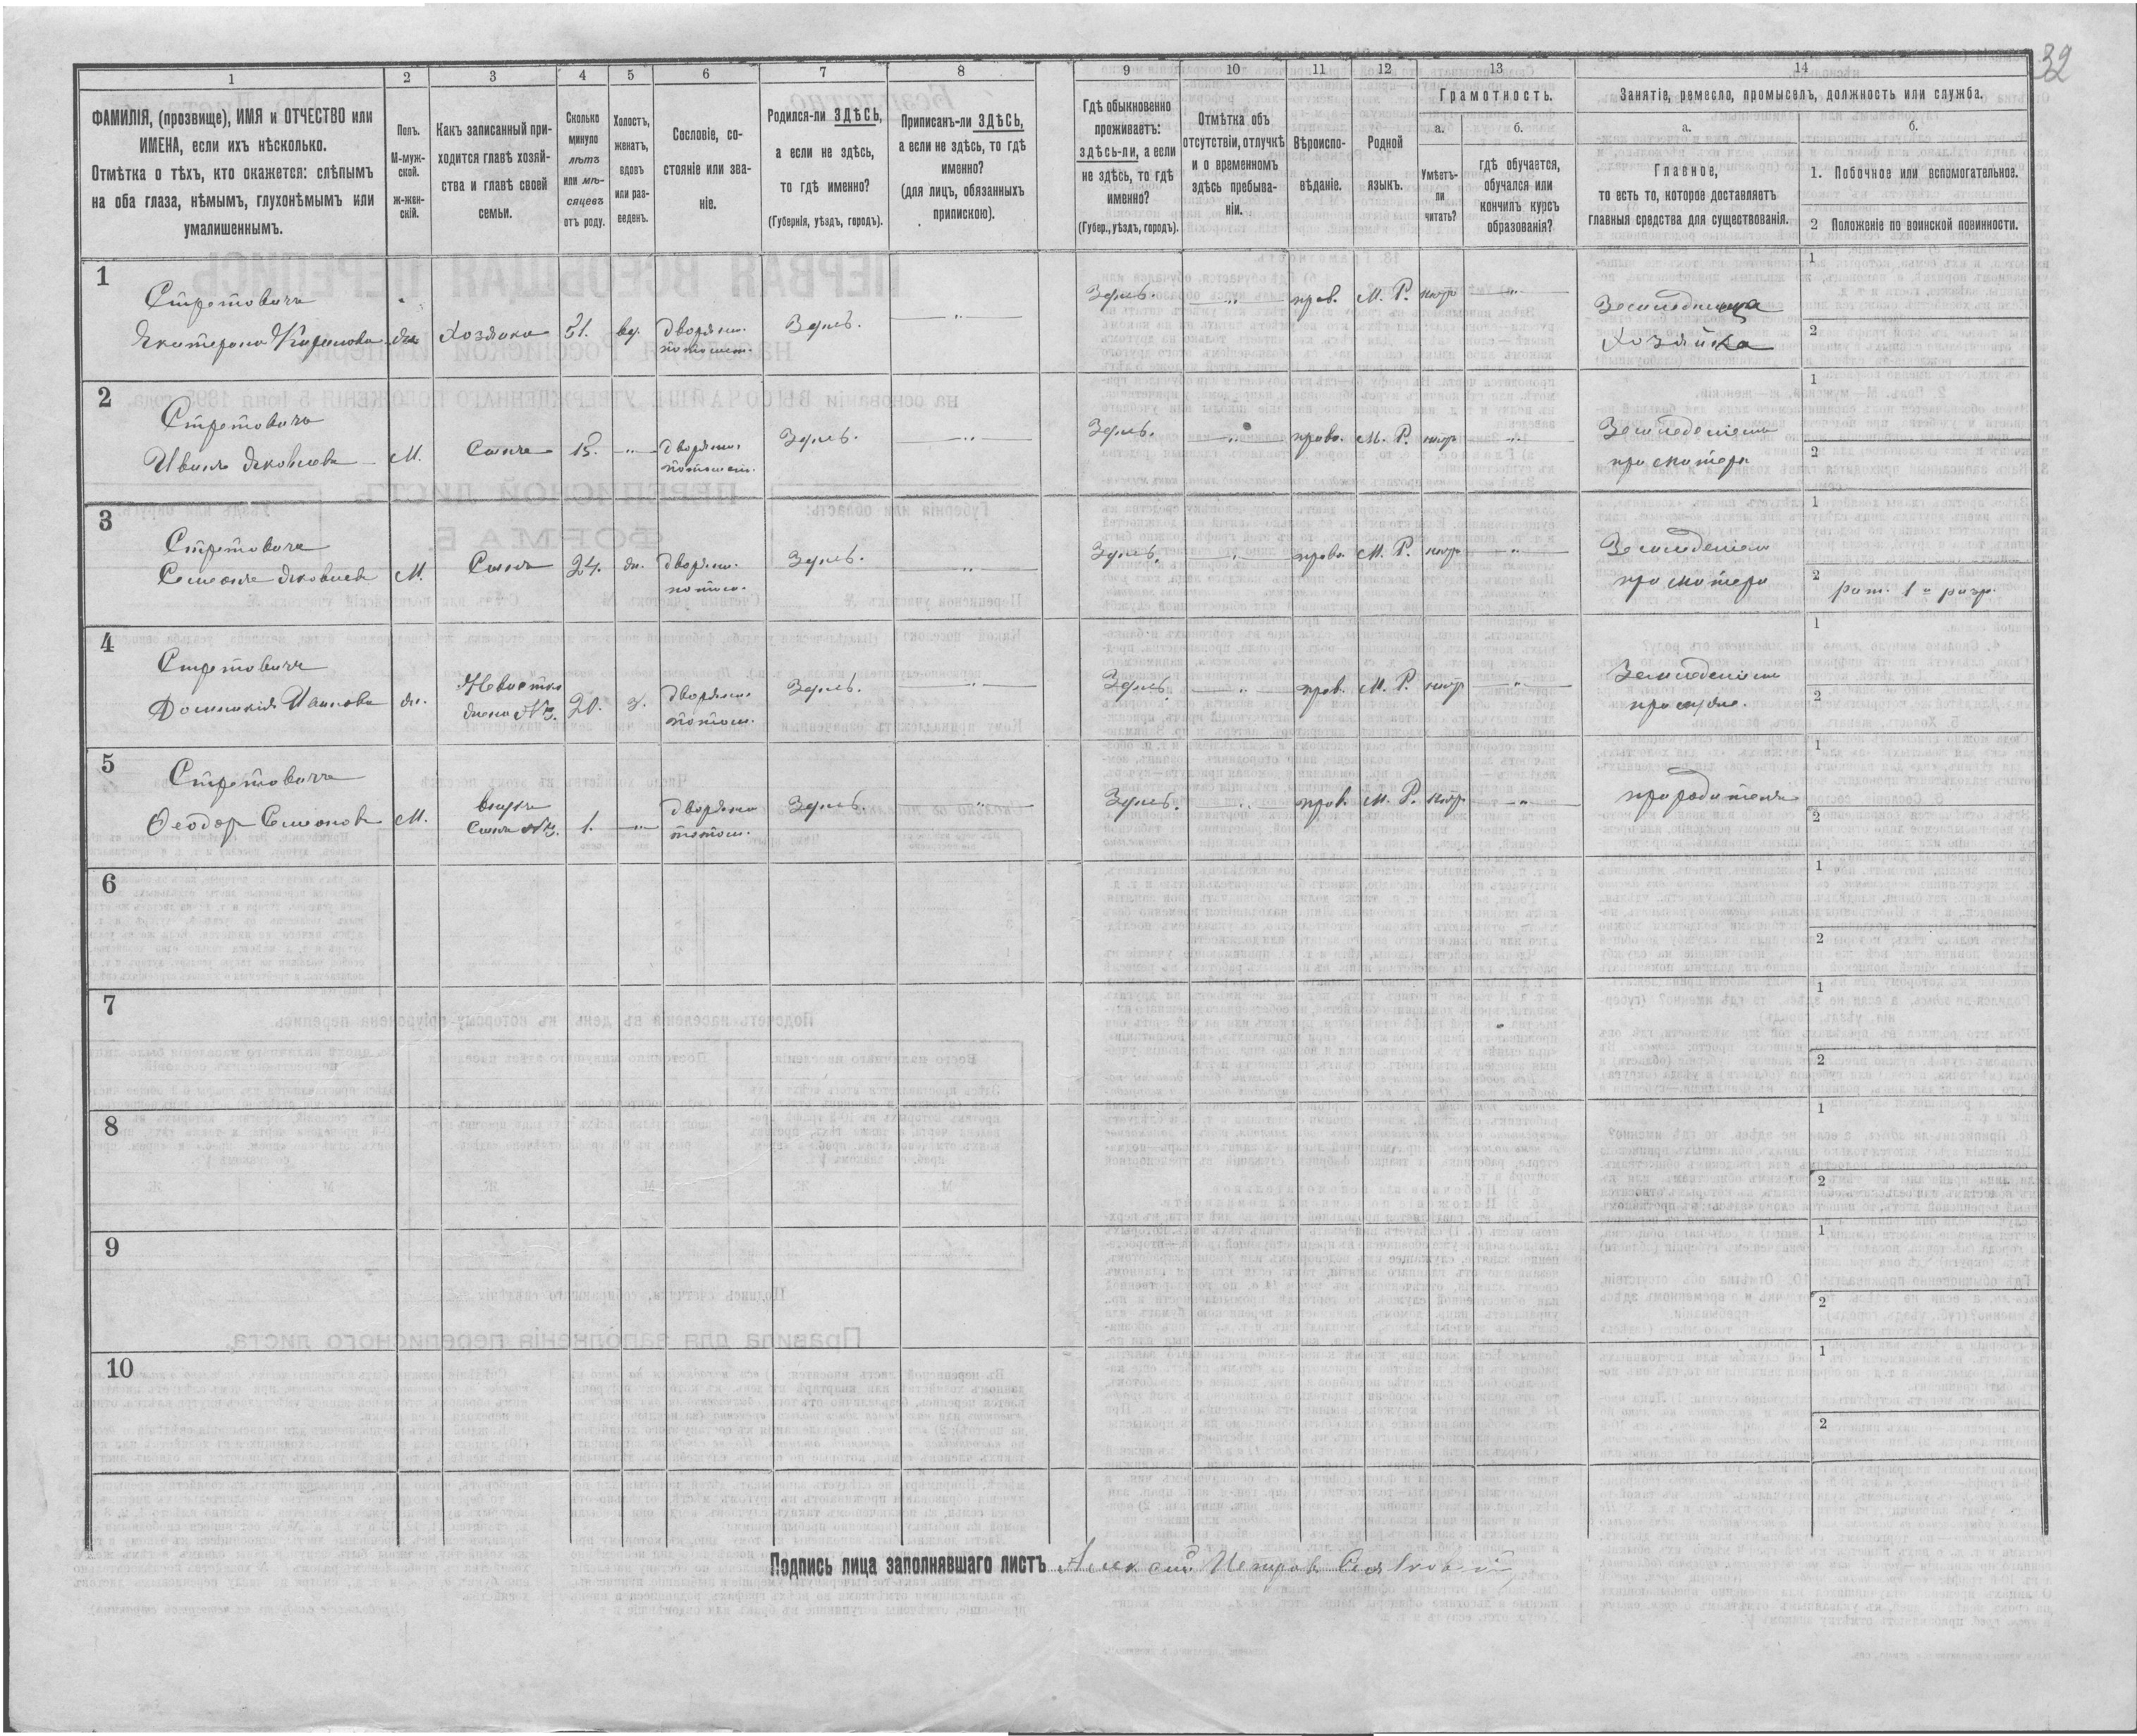 32
1
2
3
4
5
6
7
8
9
10
11
12
13
14
ФАМИЛІЯ, (прозвище), ИМЯ и ОТЧЕСТВО или
ИМЕНА, если ихъ нѣсколько.
Отмѣтка о тѣхъ, кто окажется: слѣпымъ
на оба глаза, нѣмымъ, глухонѣмымъ или
умалишеннымъ.
Полъ.
М-муж-
ской.
ж-жен-
скій.
Какъ записанный при-
ходится главѣ хозяй-
ства и главѣ своей
семьи.
Сколько
минуло
лѣтъ
или мѣ-
сяцевъ
отъ роду.
Холостъ,
женатъ,
вдовъ
или раз-
веденъ.
Сословіе, со-
стояніе или зва-
ніе.
Родился-ли ЗДѢСЬ,
а если не здѣсь,
то гдѣ именно?
(Губернія, уѣздъ, городъ).
Приписанъ-ли ЗДѢСЬ,
а если не здѣсь, то гдѣ
именно?
(для лицъ, обязанныхъ
припискою).
Гдѣ обыкновенно
проживаетъ:
здѣсь-ли, а если
не здѣсь, то гдѣ
именно?
(Губер., уѣздъ, городъ).
Отмѣтка объ
отсутствіи, отлучкѣ
и о временномъ
здѣсь пребыва-
ніи.
Вѣроиспо-
вѣданіе.
Родной
языкъ.
Грамотность.
а.
Умѣетъ-
ли
читать?
б.
гдѣ обучается,
обучался или
кончилъ курсъ
образованія?
Занятіе, ремесло, промыселъ, должность или служба.
а.
Главное,
то есть то, которое доставляетъ
главныя средства для существованія.
б.
1. Побочное или вспомогательное.
2 Положеніе по воинской повинности.
1
Стретовичъ
Екатерина Кирилова
Хозяйка
51.
вд.
дворян.
потомст.
Здѣсь.
"
Здѣсь.
"
прав.
М. Р.
нѣтъ
"
Хозяйка
1
2
2
Стретовичъ
Иванъ Яковлевъ
М.
Сынъ
"
дворян.
потомст.
Здѣсь.
"
Здѣсь.
"
прав.
М. Р.
нѣтъ
"
Земледеліемъ
при матери
1
2
3
Стретовичъ
Семенъ Яковлевъ
М.
Сынъ
24.
жн.
дворян.
потом.
Здѣсь.
"
Здѣсь.
"
прав.
М. Р.
нѣтъ
"
Земледеліемъ
при матери
1
2
рат. 1го разр.
4
Стретовичъ
жн.
Невестка
жена №3.
20.
з.
дворян.
потом.
Здѣсь.
"
Здѣсь.
"
прав.
М. Р.
нѣтъ
"
Земледеліемъ
при мужѣ.
1
2
5
Стретовичъ
Ѳеодоръ Семеновъ
М.
внукъ
сынъ №3.
1.
"
дворян.
потом.
Здѣсь.
"
Здѣсь.
"
прав.
М. Р.
нѣтъ
"
при родителяхъ
1
2
6
1
2
7
1
2
8
1
2
9
1
2
10
1
2
Подпись лица заполнявшаго листъ Алексѣй Петровъ